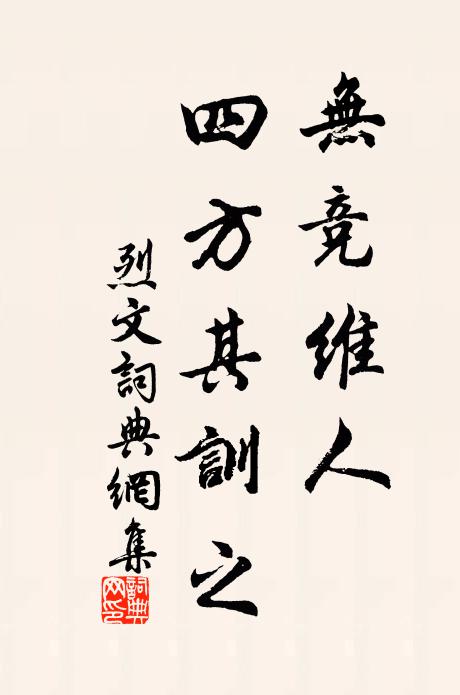 無竞维人
四方其訓之
烈文詞典網集
詞典
网印